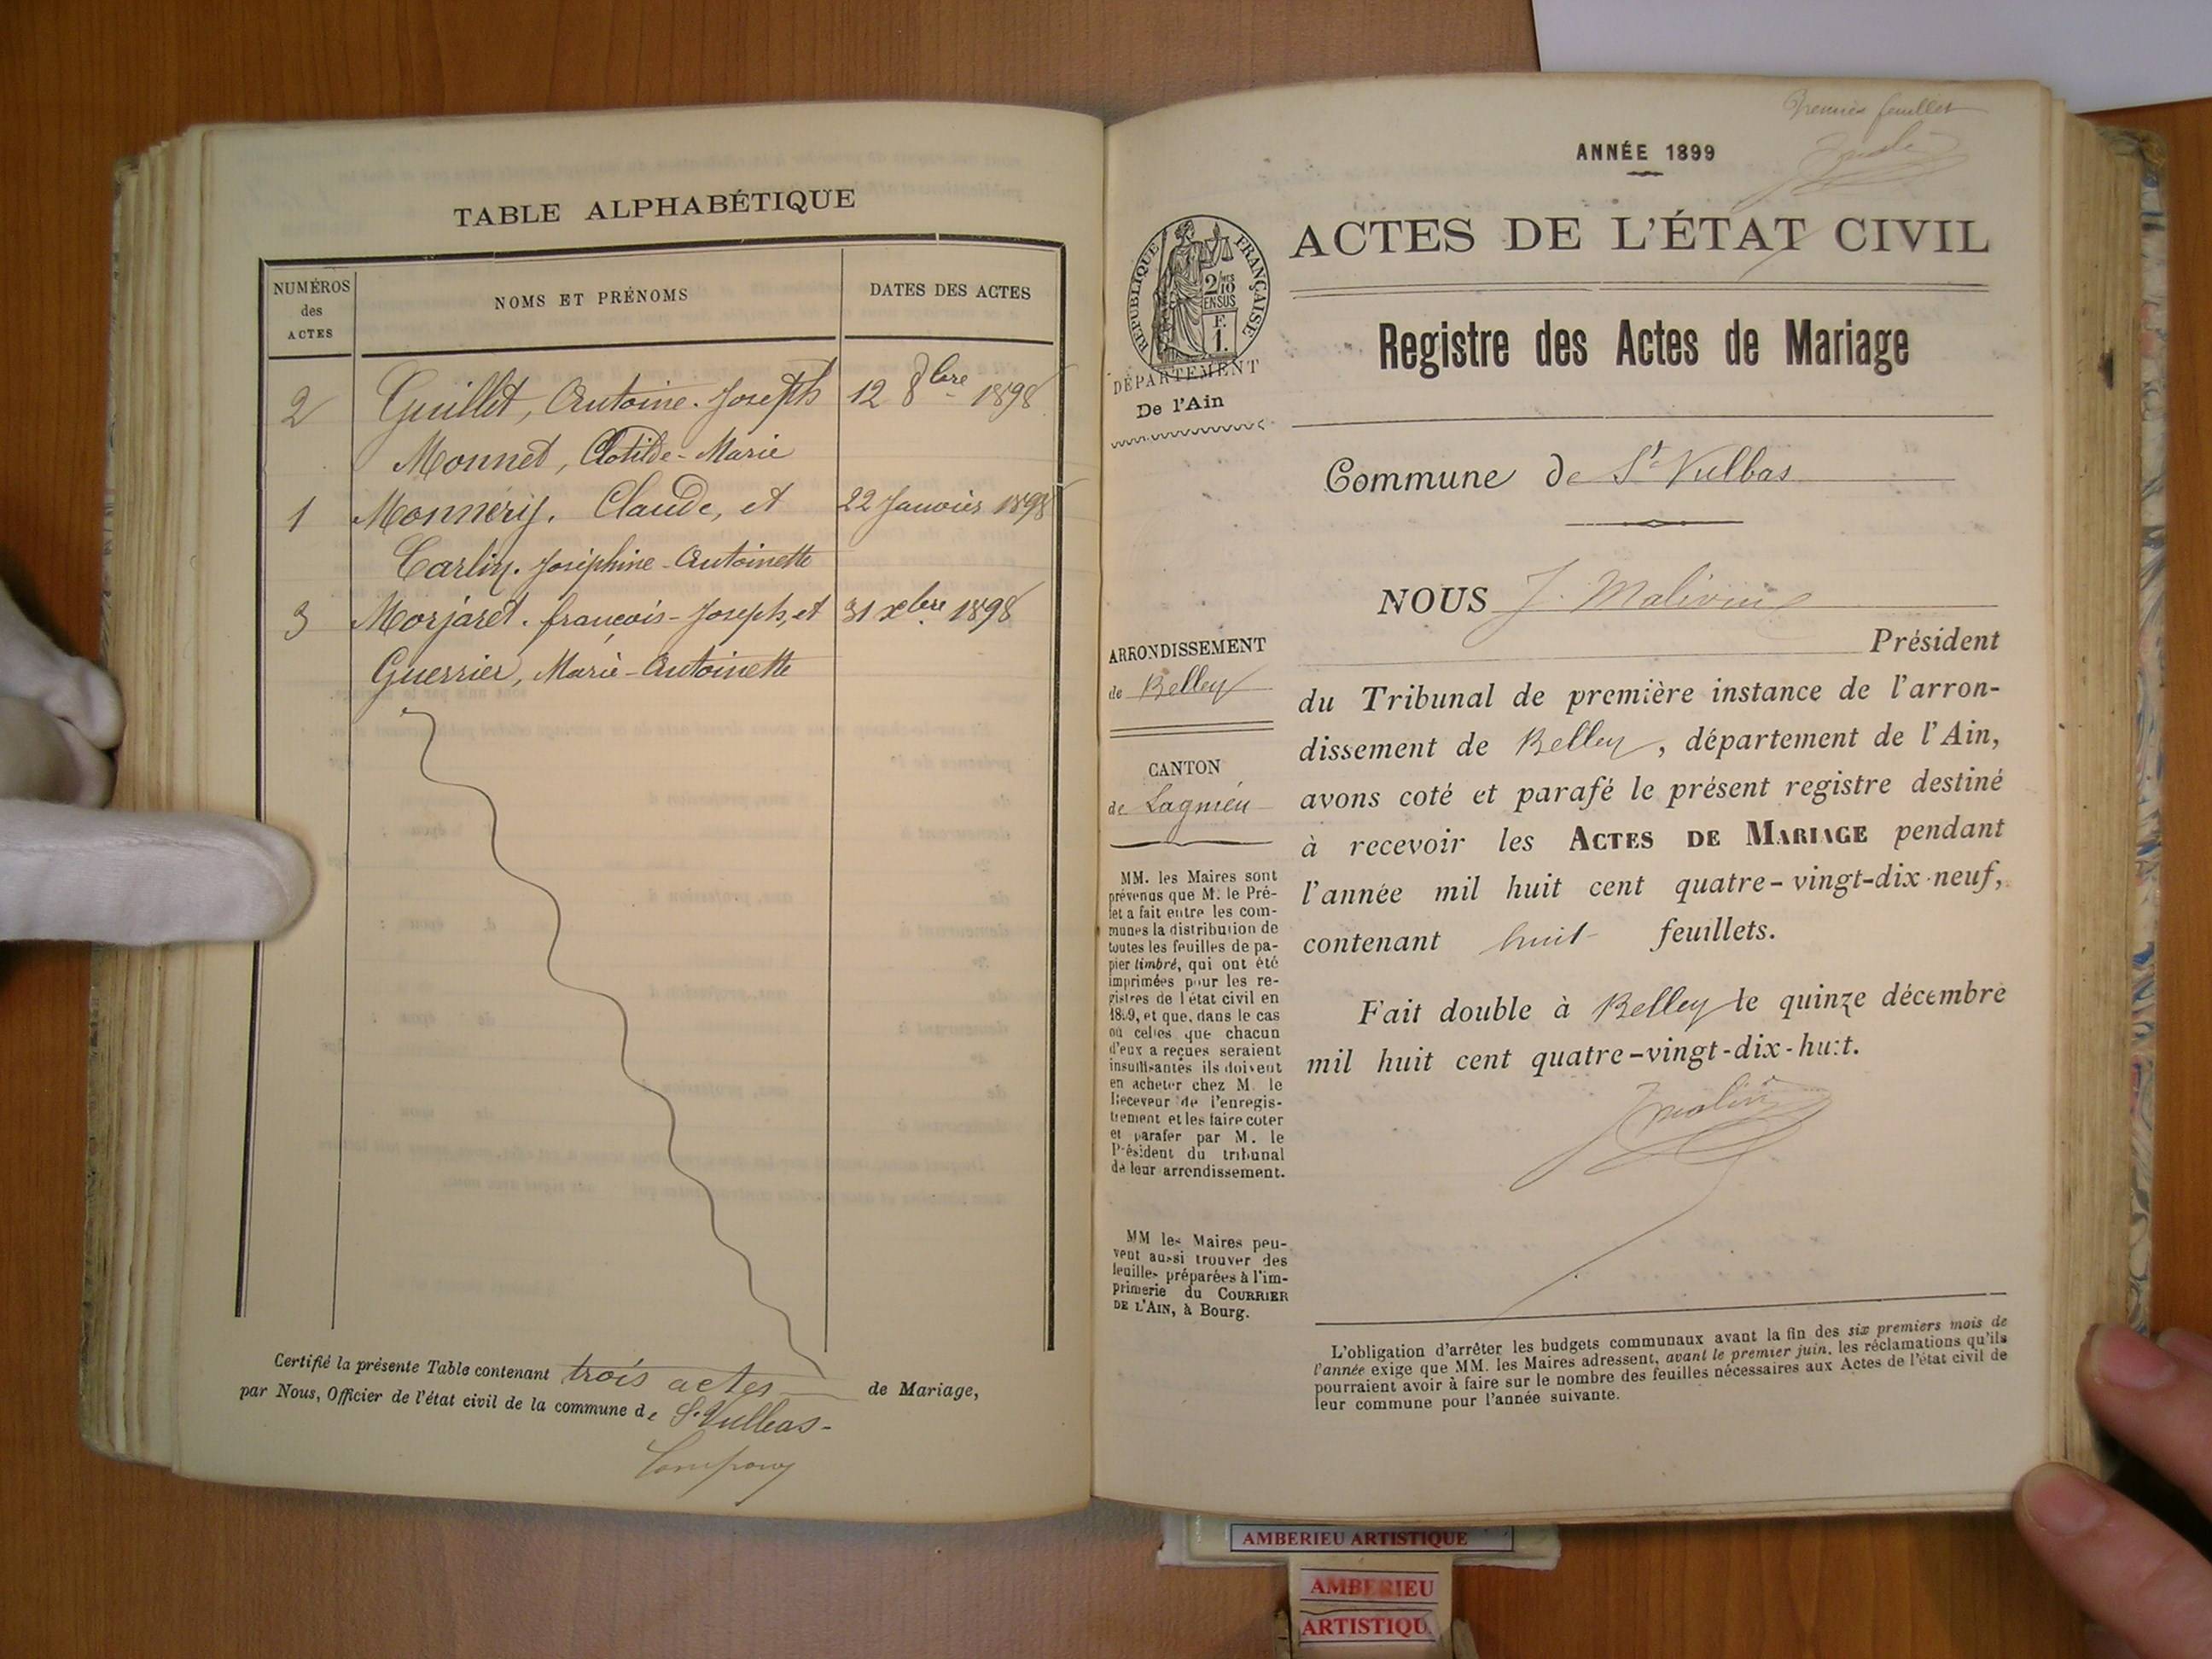 TABLE ALPHABÉTIQUE
NUMÉROS
des
ACTES
NOMS ET PRÉNOMS
DATES DES ACTES
2 Guillet, Antoine-Joseph 12 8bre 1898
Monnet, Clotilde-Marie
1 Monnery, Claude, et 22 Janvier 1898
Carlin, Joséphine-Antoinette
3 Morjaret, françois-Joseph, et 31 xbre 1898
Guerrier, Marie-Antoinette
Certifié la présente Table contenant trois actes de Mariage,
par Nous, Officier de l'état civil de la commune de St Vulbas-
Premier feuillet
ANNÉE 1899
ACTES DE L'ÉTAT CIVIL
RÉPUBLIQUE FRANÇAISE
2/10
EN SUS
F.
1.
DÉPARTEMENT
De l'Ain
Registre des Actes de Mariage
Commune de St Vulbas
NOUS J.
Président
du Tribunal de première instance de l'arron-
dissement de Belley, département de l'Ain,
avons coté et parafé le présent registre destiné
à recevoir les ACTES DE MARIAGE pendant
l'année mil huit cent quatre-vingt-dix-neuf,
contenant huit feuillets.
Fait double à Belley le quinze décembre
mil huit cent quatre-vingt-dix-huit.
ARRONDISSEMENT
de Belley
CANTON
de Lagnieu
MM. les Maires sont
prévenus que M. le Pré-
fet a fait entre les com-
munes la distribution de
toutes les feuilles de pa-
pier timbré, qui ont été
imprimées pour les re-
gistres de l'état civil en
1899, et que, dans le cas
où celles que chacun
d'eux a reçues seraient
insuffisantes ils doivent
en acheter chez M. le
Receveur de l'enregis-
trement et les faire coter
et parafer par M. le
Président du tribunal
de leur arrondissement.
MM les Maires peu-
vent aussi trouver des
feuilles préparées à l'im-
primerie du COURRIER
DE L'AIN, à Bourg.
L'obligation d'arrêter les budgets communaux avant la fin des six premiers mois de
l'année exige que MM. les Maires adressent, avant le premier juin, les réclamations qu'ils
pourraient avoir à faire sur le nombre des feuilles nécessaires aux Actes de l'état civil de
leur commune pour l'année suivante.
AMBERIEU ARTISTIQUE
AMBERIEU
ARTISTIQU